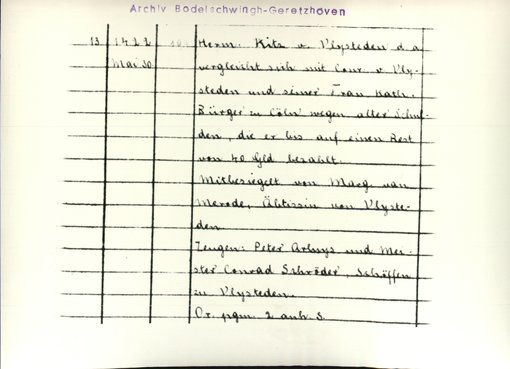 Archiv Bodelschwingh-Geretzhoven
13 1422 Herm. Kitz v. Vlysteden d. a.
Mai 30 vergleicht sich mit Conr. v. Vly-
steden und seiner Frau Kath.
Bürger zu Cöln wegen aller Schul-
den, die er bis auf einen Rest
von 40 Gld bezahlt.
Mitbesiegelt von Marg. van
Merode, Äbtissin von Vlyste-
den
Zeugen: Peter und Mei-
ster Conrad Schröder, Schöffen
zu Vlysteden.
Or. pgm. 2 anh. S.